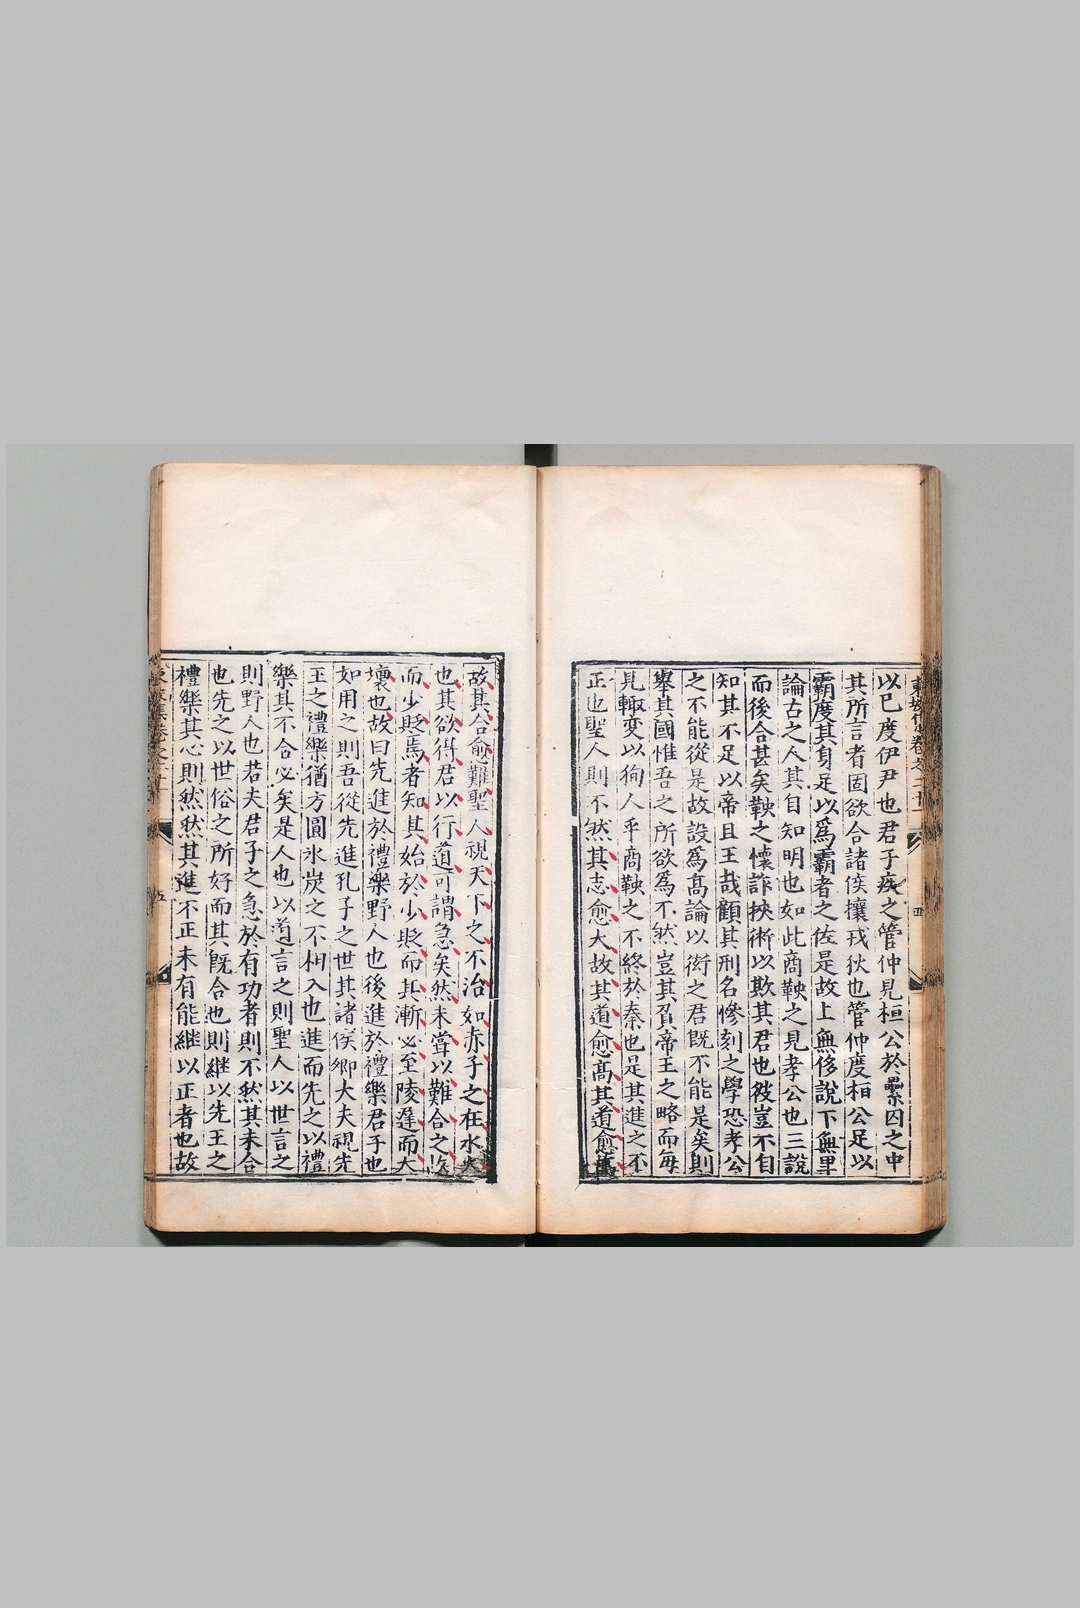 以已度伊尹也君子疾之管仲見桓公於纍囚之中
其所言者固欲合諸侯攘戎狄也管仲度桓公足以
霸度其身足以爲霸者之佐是故上無侈說下無卑
論古之人其自知明也如此商鞅之見孝公也三說
而後合甚矣鞅之懷詐挾術以欺其君也彼豈不自
知其不足以帝且王哉顧其刑名慘刻之學恐孝公
之不能從是故設爲高論以衒之君旣不能是矣則
舉其國惟吾之所欲爲不然豈其負帝王之略而每
見輙變以徇人乎商鞅之不終於秦也是其進之不
正也聖人則不然其志愈大故其道愈高其道愈
故其合愈難聖人視天下之不治如赤子之在水火
也其欲得君以行道可謂急矣然未嘗以難合之故
而少貶焉者知其始於少貶而其漸必至陵遲而大
壞也故曰先進於禮樂野人也後進於禮樂君子也
如用之則吾從先進孔子之世其諸侯卿大夫視先
王之禮樂猶方圓氷炭之不相入也進而先之以禮
樂其不合必矣是人也以道言之則聖人以世言之
則野人也若夫君子之急於有功者則不然其未合
也先之以世俗之所好而其旣合也則繼以先王之
禮樂其心則然然其進不正未有能繼以正者也故
五